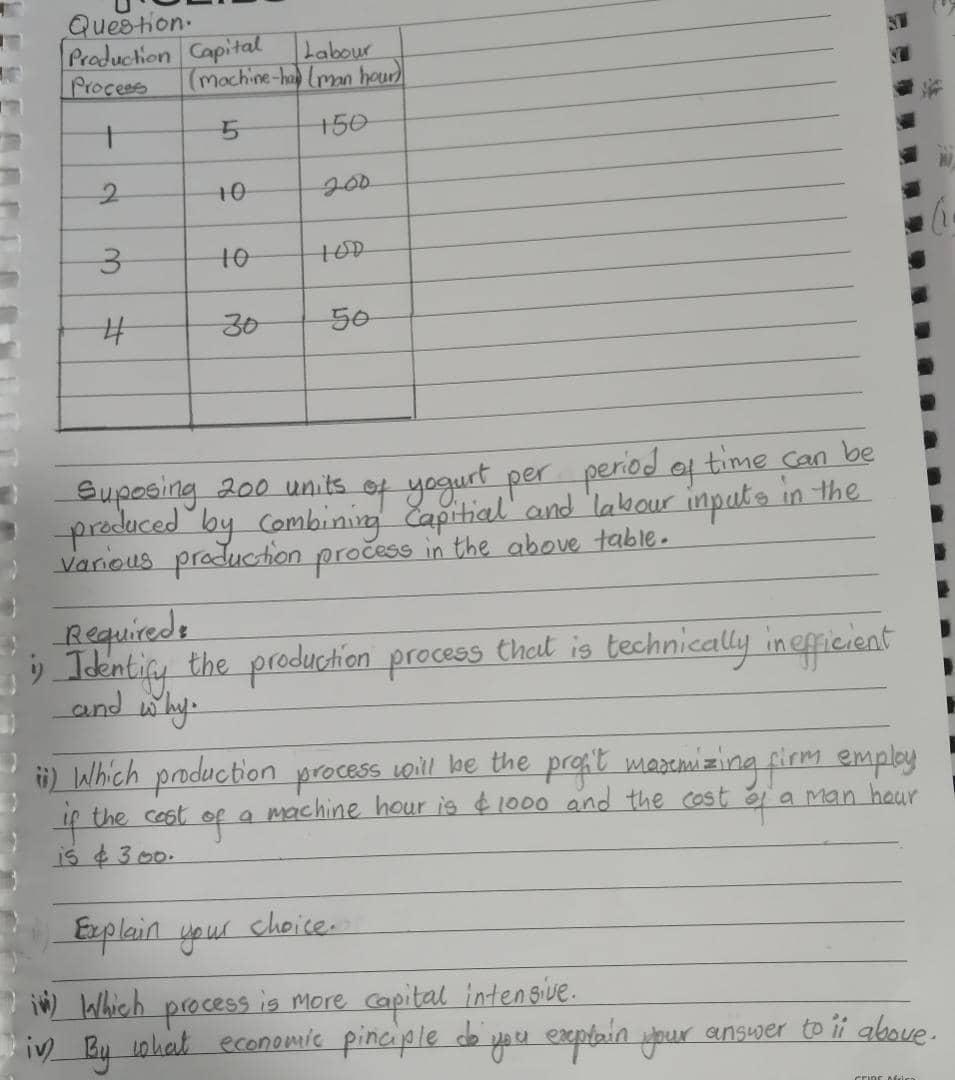 Question.
Production Capital Labour
Process (machine-ha) (man hour)
1 5 150
2 10 200
3 10 100
4 30 50
Suposing 200 units of yogurt per period of time can be
produced by combining Capitial and labour inputs in the
various production process in the above table.
Required:
i) Identify the production process that is technically inefficient
and why.
ii) Which production process will be the profit maxmizing firm employ
if the cost of a machine hour is ¢1000 and the cost of a man hour
is ¢300.
Explain your choice.
iii) Which process is more capital intensive.
iv) By what economic pinciple do you explain your answer to ii above.